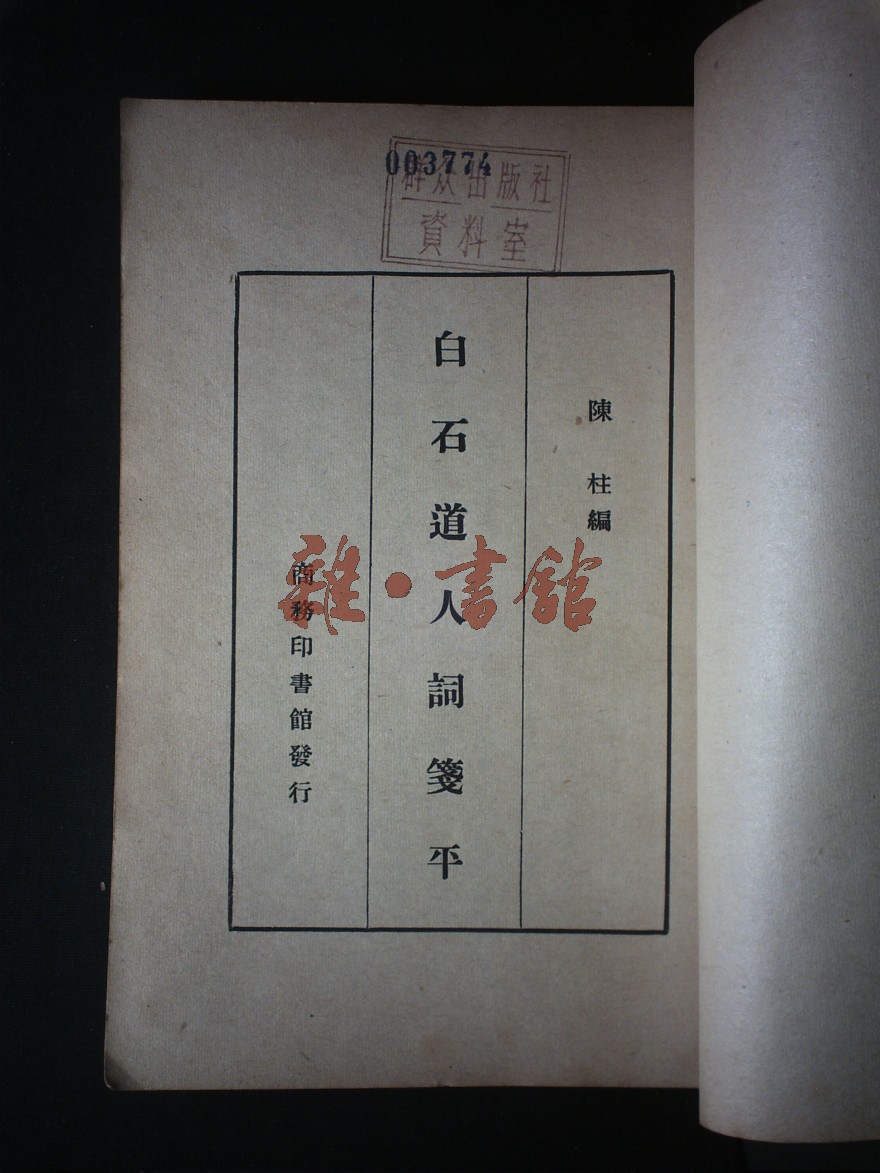 003774
群众出版社
資料室
陳柱編
白石道人詞箋平
商務印書館發行
雜·書館